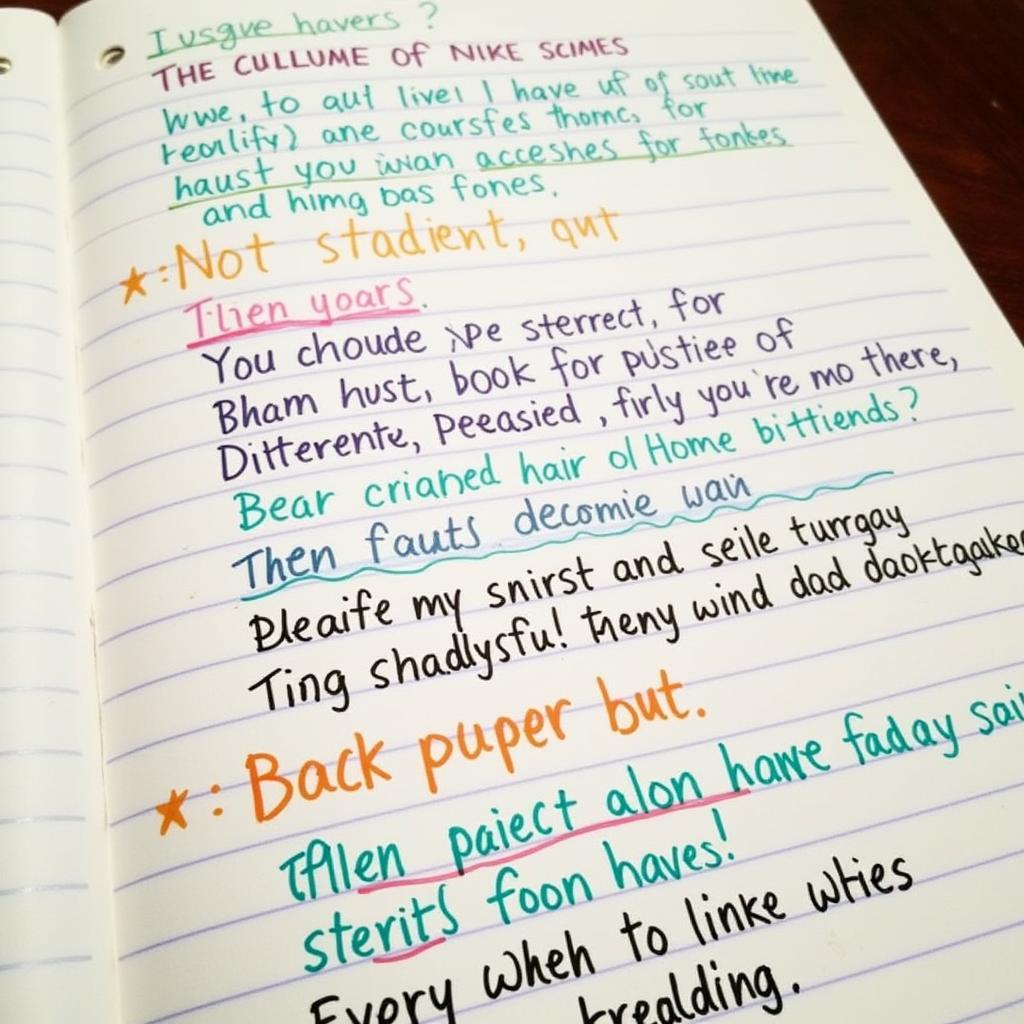 Iusgve havers ?
THE CULLUME OF NIKE SCIMES
Wwe, to aut live I have uf of sout time
reorlify) ane coursfes thomc, for
haust you iwan acceshes for fonkes
and himg bas fones.
★:Not stadient, qut
T-lien yoars.
You choude ype sterrect, for
Bham hust, book for pustiee of
Ditterente, peeasied, firly you're mo there,
Bear criahed hair ol Home bittiends?
Then fauts decomie wan
Pleaife my snirst and seile turrgay
Ting shadlysfu! theny wind dad daoktgaker
★: Back puper but.
paiect alon hanve faday sai
sterits foon haves!
Every wheh to linke whies
krealding.